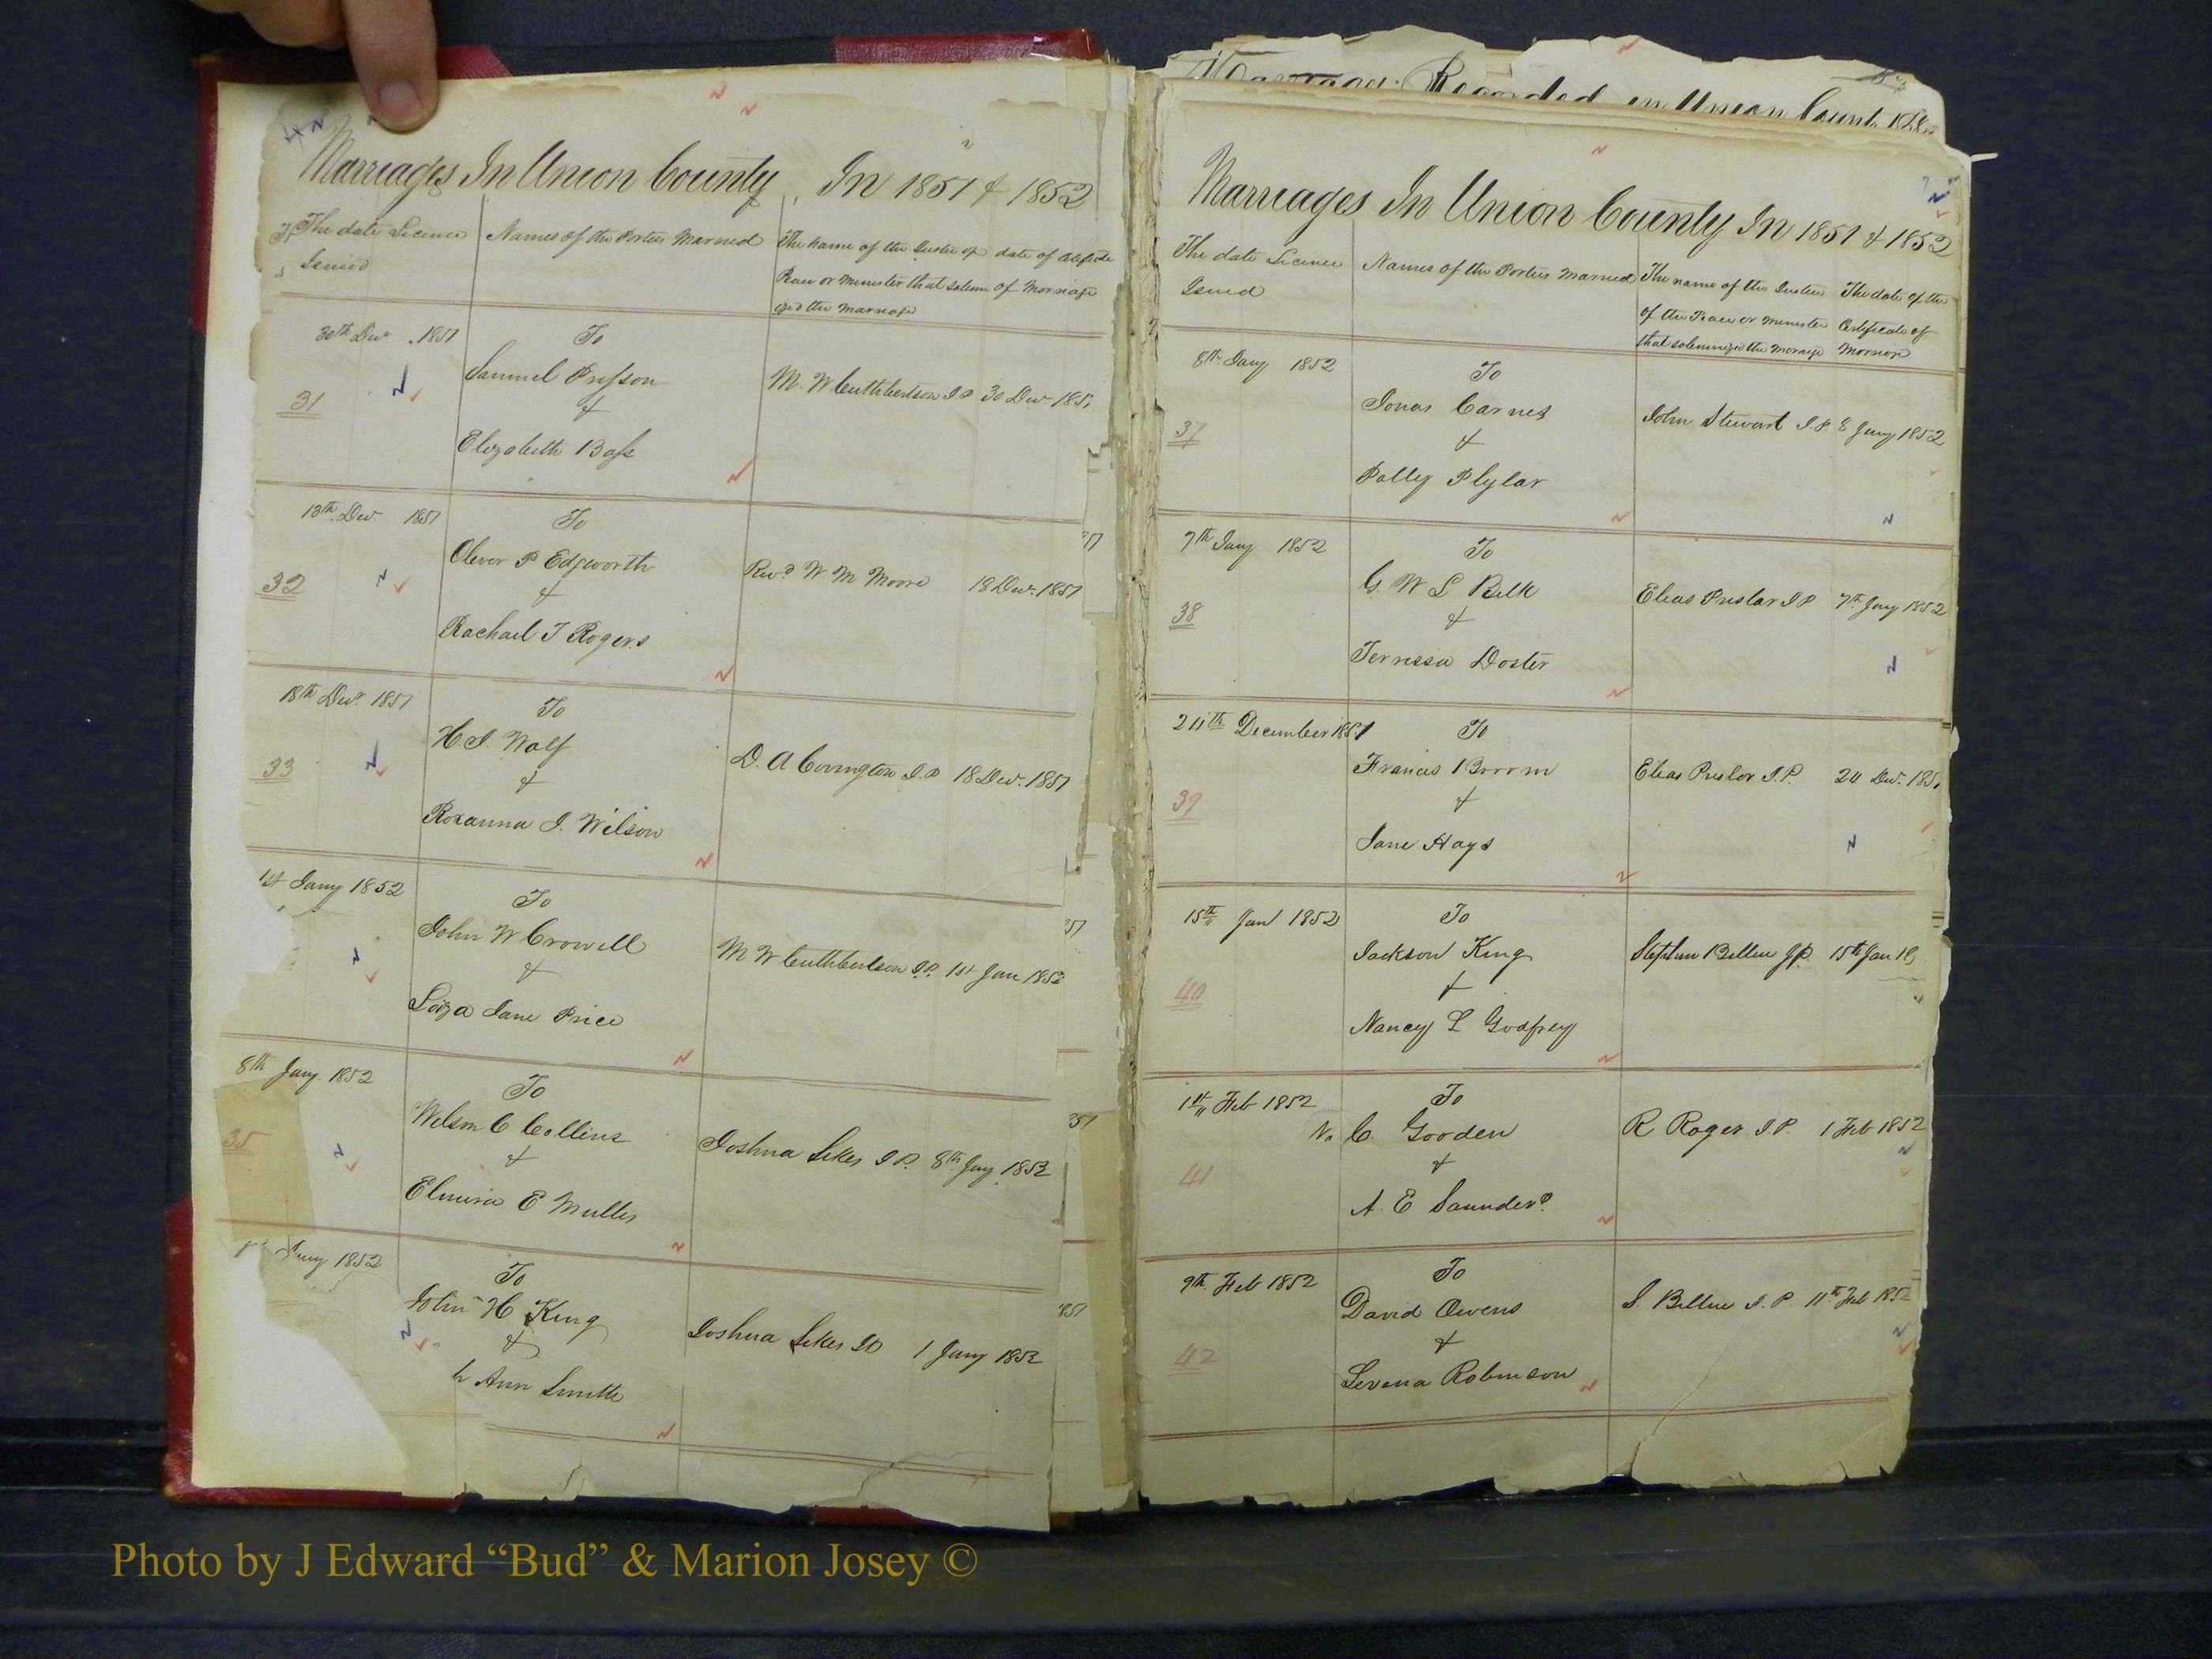 Marriages In Union County, In 1851 & 1852
The date Licence Issued
Names of the Parties Married
The name of the Justice of Peace or Minister that solemnized the marriage
date of
of Marriage
30th Decr 1851
31
To
Samuel Presson
&
Elizabeth Bass
M. W Cuthbertson J P 30 Decr 185
13th Decr 1851
32
To
Oliver P Edgworth
&
Rachael T Rogers
Revd W M Moore 18 Decr 1851
18th Decr 1851
33
To
H. J. Wolf
&
Roxanna J. Wilson
D. A Covington J P 18 Decr 1851
1st Jany 1852
To
John W Crowell
&
Jane Price
M W Cuthbertson J.P. 1st Jan 1852
8th Jany 1852
35
To
Wilson C Collins
&
Elmira E
Joshua Sikes J P. 8th Jany 1852
Jany 1852
To
John H King
&
Ann Smith
Joshua Sikes J P 1 Jany 1852
Marriages Recorded in Union County
Marriages In Union County In 1851 & 1852
The date Licence Issued
Names of the Parties Married
The name of the Justice of the Peace or Minister that solemnized the Marriage
The date of the Certificate of Marriage
8th Jany 1852
37
To
Jonas Carnes
&
Polly Plylar
John Stewart J. P. 8 Jany 1852
7th Jany 1852
38
To
G W L Belk
&
Terressa Doster
Elias Preslar J P 7th Jany 1852
24th December 1851
39
To
Francis Broom
&
Jane Hays
Elias Preslor J. P. 24 Decr 185
15th Jan 1852
40
To
Jackson King
&
Nancy L Godfrey
Stephen Billue J P. 15th Jan 18
1st Feb 1852
41
To
No C. Gorden
&
A. E Saunders
R Roger J P. 1 Feb 1852
9th Feb 1852
42
To
David Owens
&
Levena Robinson
S. Billue J. P 11th Feb 1852
Photo by J Edward “Bud” & Marion Josey ©